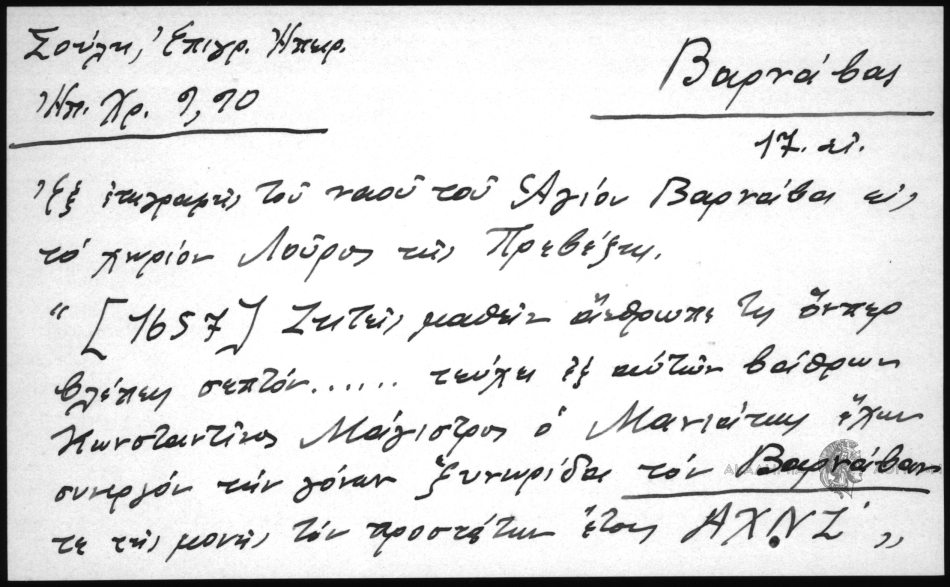 Σούλη, Ἐπιγρ. Ἠπειρ.
Ἠπ. Χρ. 9, 90
Βαρνάβας
17. αἰ.
Ἐξ ἐπιγραφῆς τοῦ ναοῦ τοῦ Ἁγίου Βαρνάβα εἰς
τό χωρίον Λοῦρος τῆς Πρεβέζης.
“ [1657] Ζητεῖς μαθεῖν ἄνθρωπε τις ὅνπερ
βλέπεις σεπτόν...... τεύχει ἐξ αὐτῶν βάθρων
Κωνσταντῖνος Μάγιστρος ὁ Μανιάτης ἔχων
συνεργόν τήν γόνων ξυνωρίδα τόν Βαρνάβαν
τε τῆς μονῆς τόν προστάτην ἔτος ΑΧΝΖ΄ „